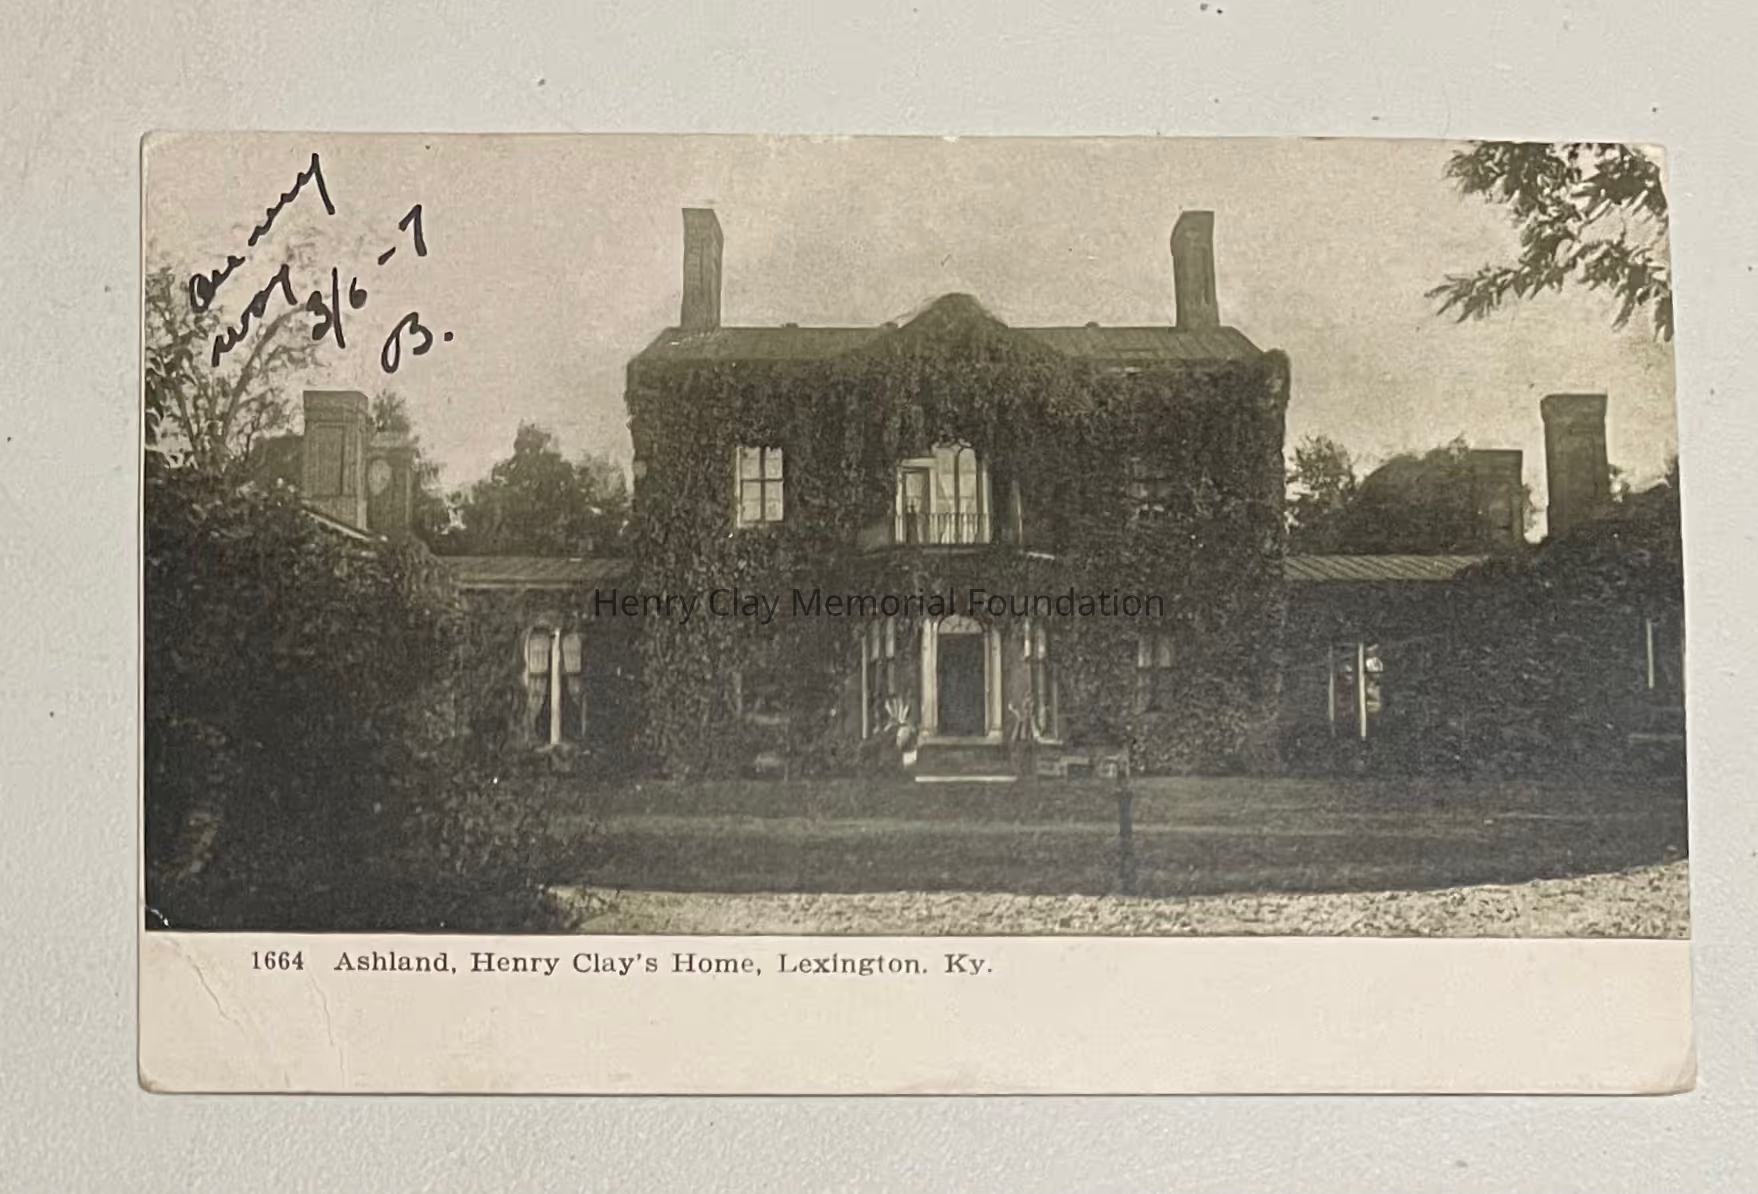 on my
way
3/6-7
B.
Henry Clay Memorial Foundation
1664 Ashland, Henry Clay's Home, Lexington. Ky.